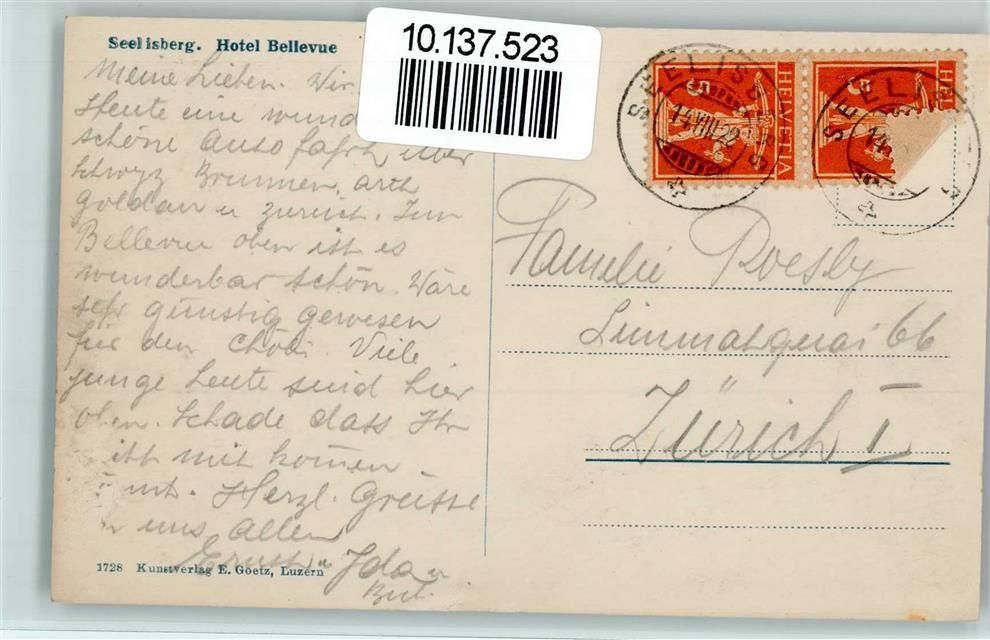 Seelisberg. Hotel Bellevue
10.137.523
Meine Lieben. Wir
Heute eine wund
schöne Autofahrt über
Schwyz Brunnen, Arth
Goldau u Zürich. Im
Bellevue oben ist es
wunderbar schön. Wäre
sehr günstig gewesen
für den Viele
junge Leute sind hier
oben. Schade dass Ihr
mit komen
Herzl. Grüsse
uns allen
Ida u
1728 Kunstverlag E. Goetz, Luzern
HELVETIA
5
HEL
5
SEELISBERG
14.VIII.22
SEELIS
14
Familie Roesly
Limmatquai 66
Zürich I